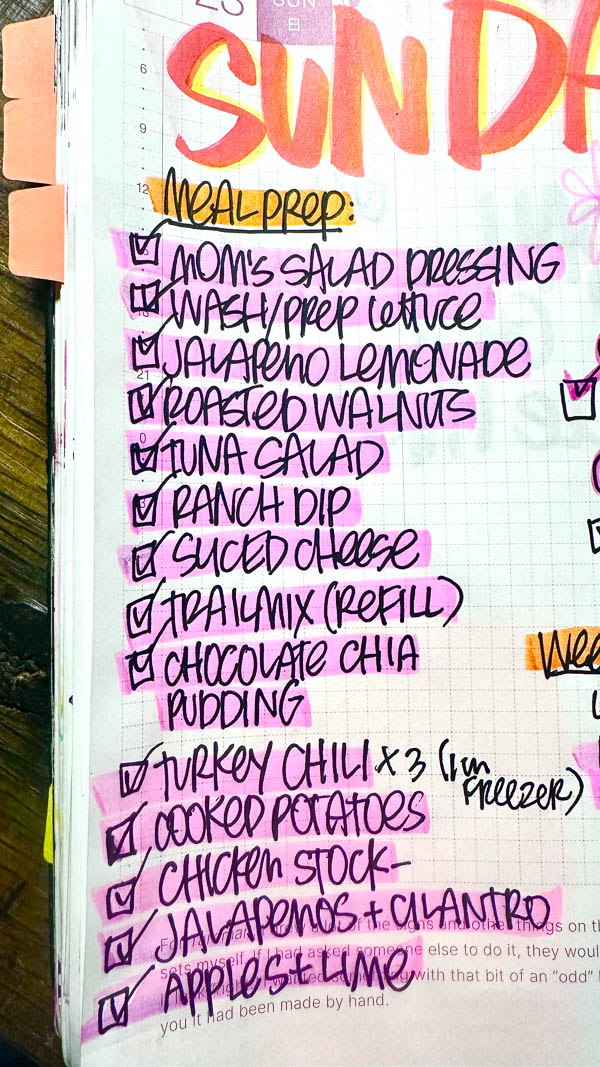 23 SUN
8
SUNDA
6
9
12
MEAL PREP:
MOM'S SALAD DRESSING
WASH/PREP LETTUCE
JALAPENO LEMONADE
21
ROASTED WALNUTS
0
TUNA SALAD
RANCH DIP
SLICED CHEESE
TRAILMIX (REFILL)
CHOCOLATE CHIA
PUDDING
Wee
TURKEY CHILI x 3 (1 in
FREEZER)
COOKED POTATOES
CHICKEN STOCK-
JALAPENOS + CILANTRO
of the signs and other things on th
APPLES + LIME
sets myself. If I had asked someone else to do it, they would
with that bit of an "odd"
you it had been made by hand.